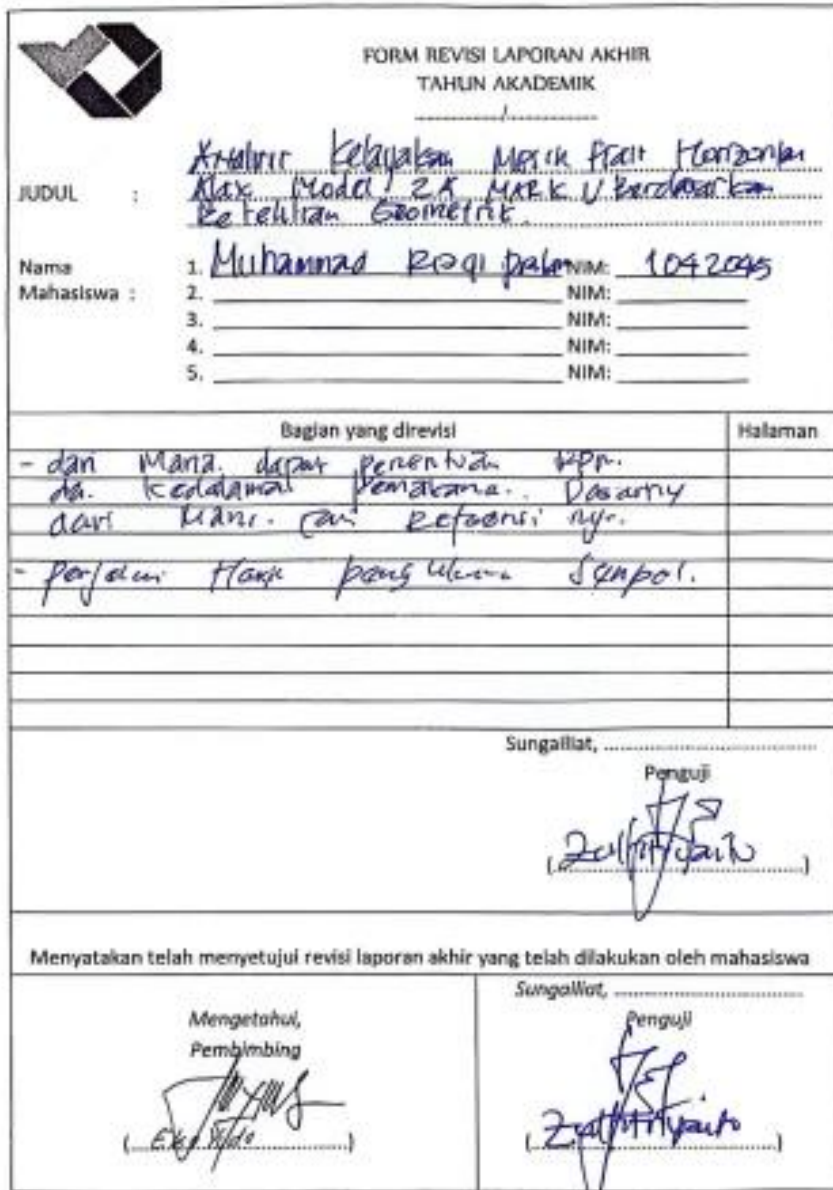 FORM REVISI LAPORAN AKHIR
TAHUN AKADEMIK
............../..............
JUDUL : Kelayakan Mesin Frais Horizontal
Alax Model 2A MARK V Berdasarkan
Ketelitian Geometrik.
Nama Mahasiswa : 1. Muhammad NIM: 1042045
2. NIM:
3. NIM:
4. NIM:
5. NIM:
Bagian yang direvisi Halaman
- dari Mana dapat penentuan RPM.
da. Kedalaman Pemakana. Dasarny
dari Mana. cari Referensi ny.
- perjelas Hasil pengukuran
Sungailiat, ..............
Penguji
(Zulfitriyanto)
Menyatakan telah menyetujui revisi laporan akhir yang telah dilakukan oleh mahasiswa
Mengetahui,
Pembimbing
(Eko Yudo)
Sungailiat, ..............
Penguji
(Zulfitriyanto)